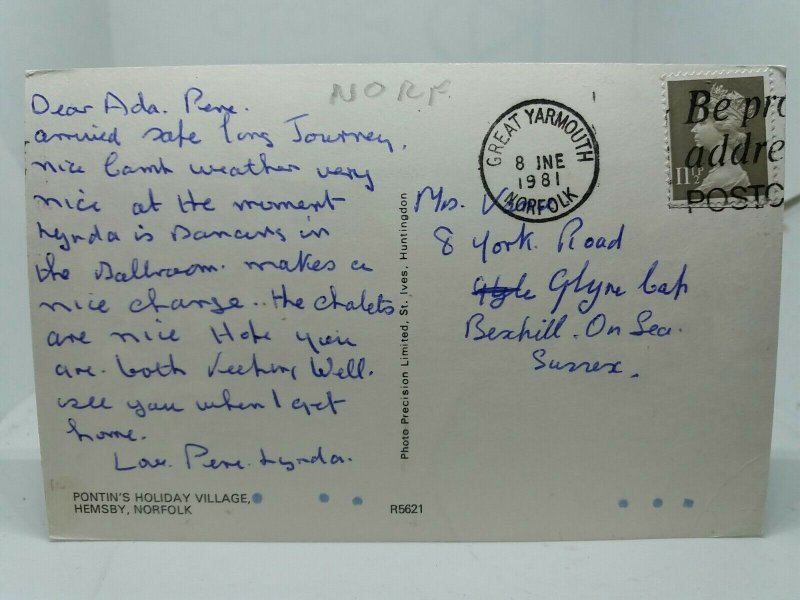 NORF
Dear Ada. Rene.
arrived safe long Journey.
nice camp weather very
nice at the moment
Lynda is Dancing in
the Ballroom. makes a
nice change.. the chalets
are nice Hope you
are. both keeping Well.
see you when I get
home.
Love. Rene. Lynda.
PONTIN'S HOLIDAY VILLAGE,
HEMSBY, NORFOLK
R5621
Photo Precision Limited, St. Ives, Huntingdon
GREAT YARMOUTH
8 JNE
1981
NORFOLK
Be pro
addre
POSTC
11½
Mrs.
8 York. Road
Glyne Gap
Bexhill. On Sea.
Sussex.